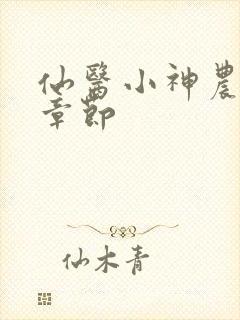 仙醫小神農
章節
仙木青